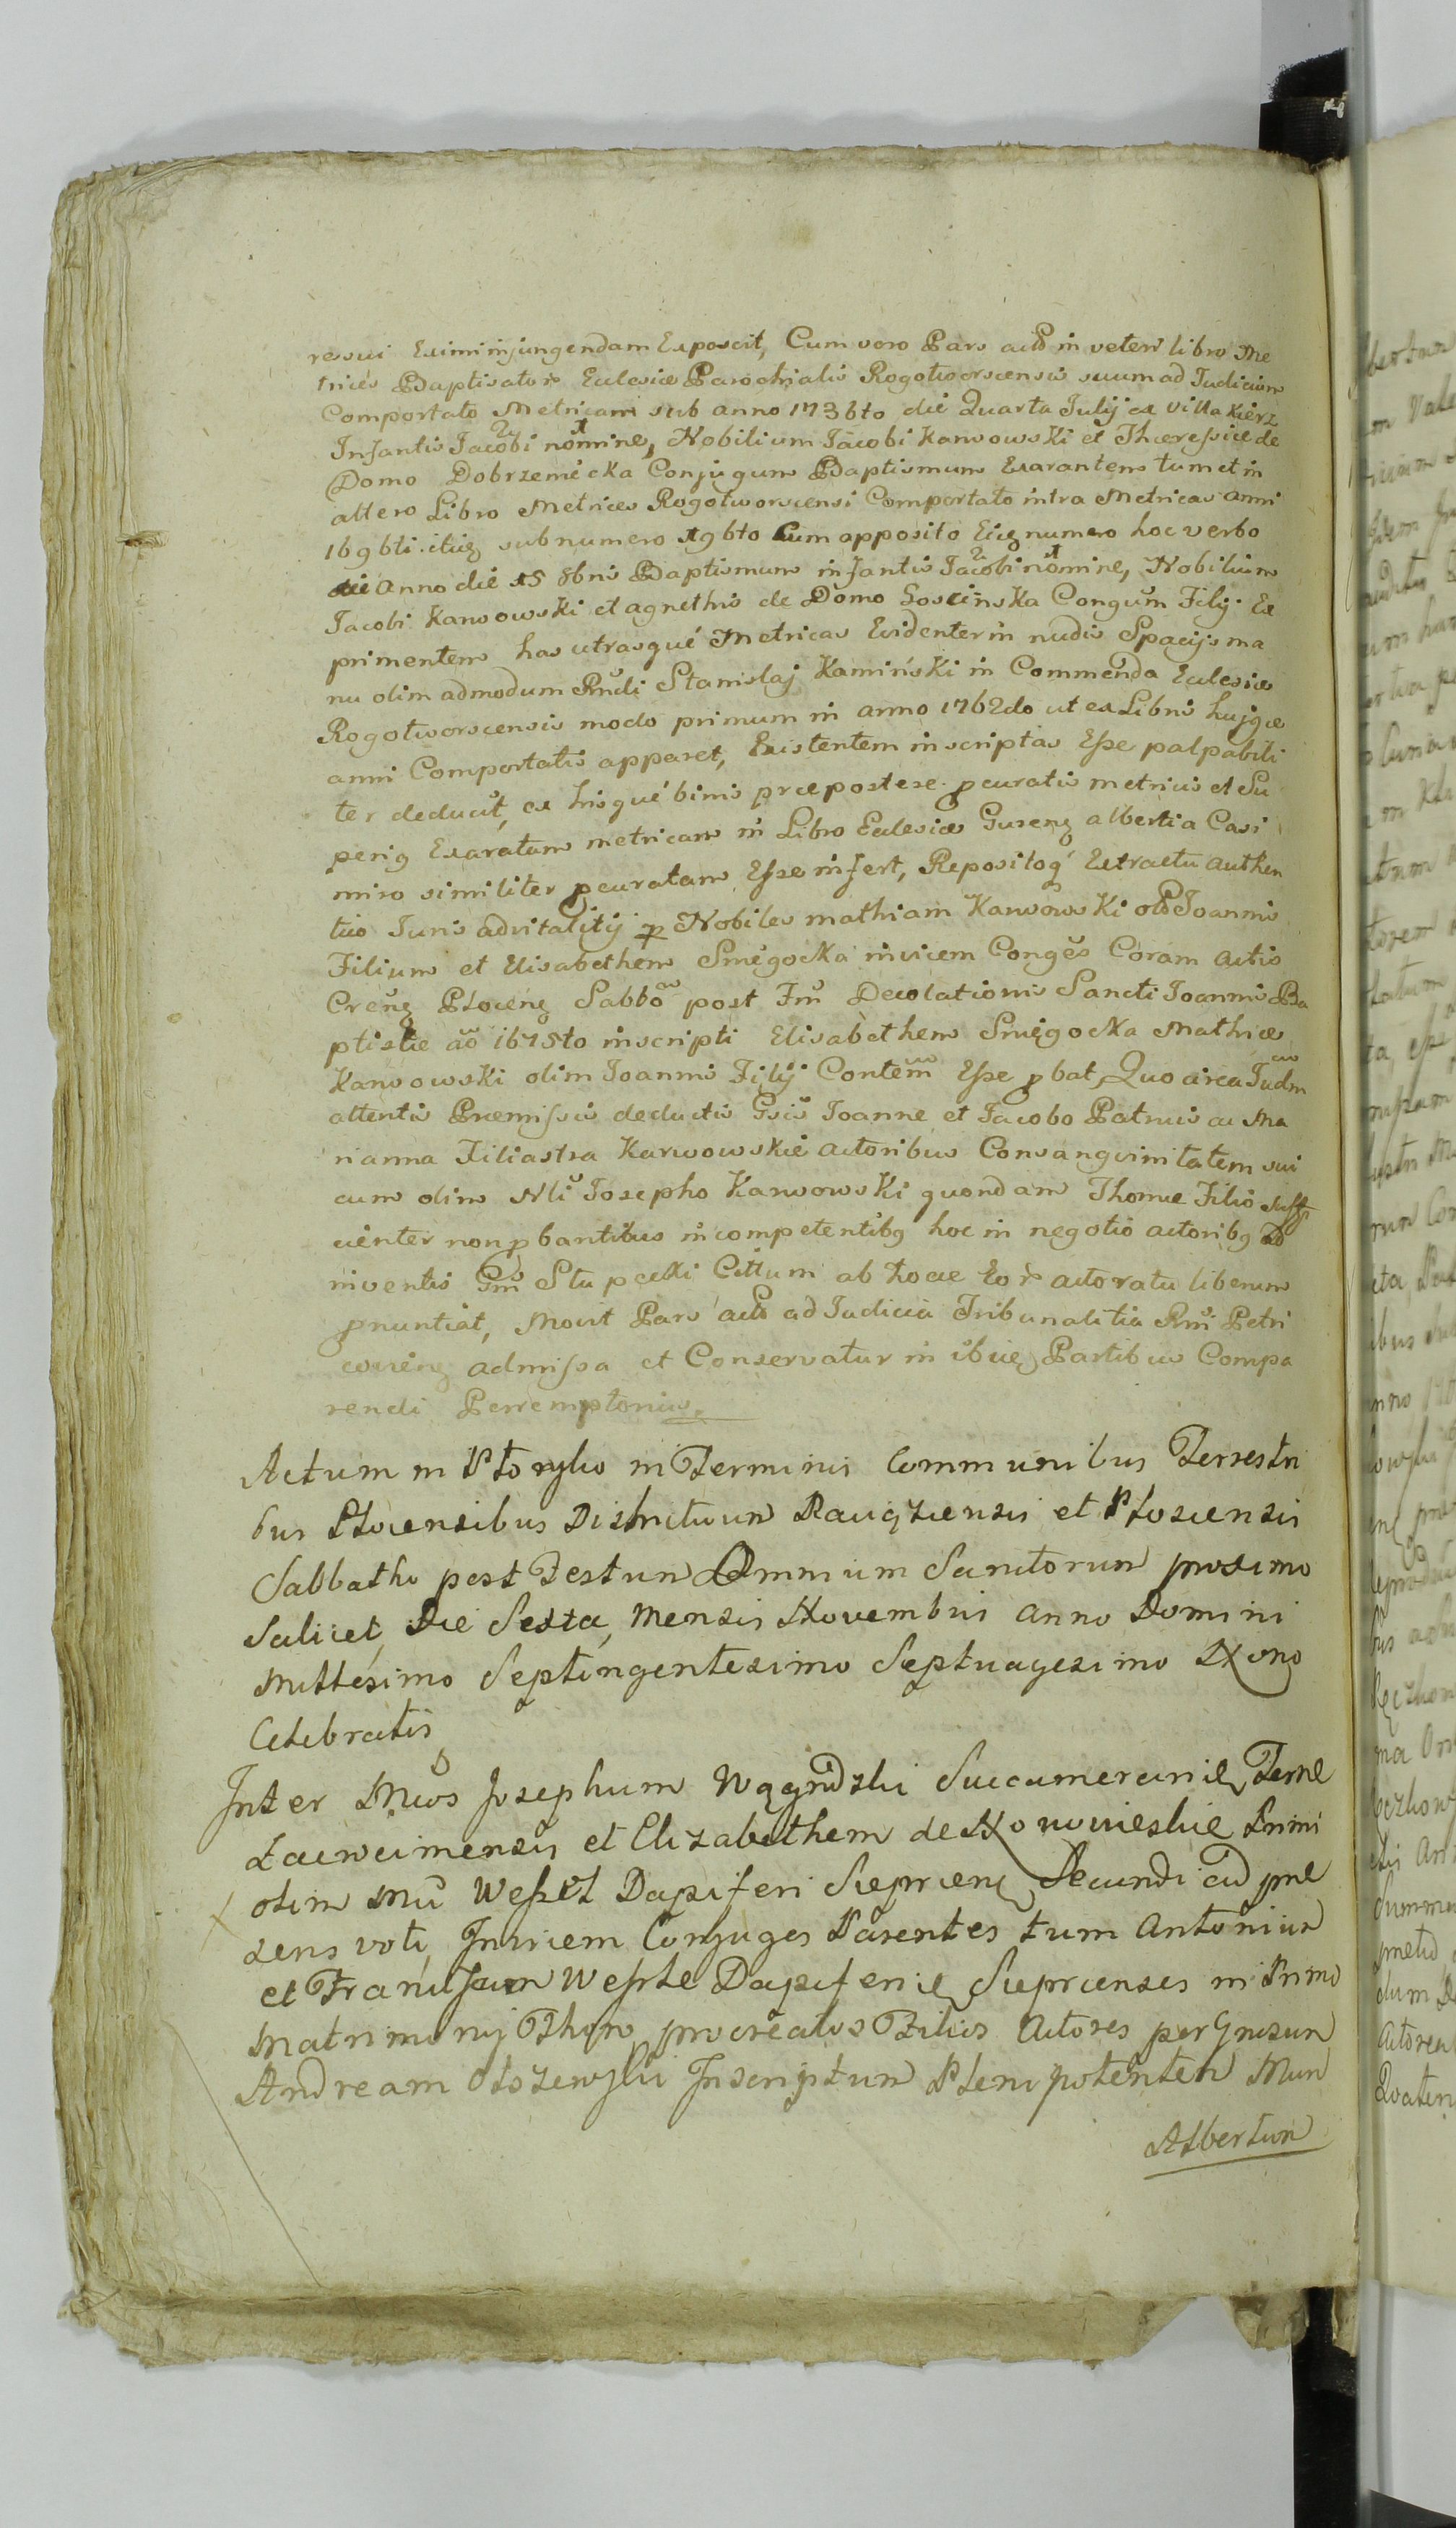 ressui Eximi injungendam Exposcit, Cum vero Pars actō in veteri libro Me
trices Baptisatorē Eclesiæ Parochialis Rogotworscensis suum ad Judicium
Comportato Metricam sub anno 1736to die Quarta Julij ex villa Kierz
Infantis Jacobi nomine, Nobilium Jacobi Karwowski et Theressiæ de
Domo Dobrzemicka Conjugum Baptismum Exarantem tum et in
altero Libro Metrices Rogotworscensi Comportato intra Metricas anni
1696ti sub numero 196to cum apposito numero hoc verbo
Anno die 15 8bris Baptismum infantis Jacobi nomine, Nobilium
Jacobi Karwowski et agnethis de Domo Goscinska Congūm Filij Ex
primentem has utrasqué Metricas Evidenter in nudis Spacijs ma
nu olim admodum Rndi Stanislaj Kamiński in Commenda Eclesiæ
Rogotworscensis modo primum in anno 1762do ut ex Libris hujqe
anni Comportatis apparet, Existentem inscriptas Esse palpabili
ter deducit, ex hisqué binis præpostere pcuratis metricis et Su
perig Exaratam metricam in Libro Eclesiæ Gureng albertia Casi
miro similiter pcuratam Esse infert, Repositoq Extractu authen
tico Juris advitalitij p Nobiles mathiam Karwowski olō Joannis
Filium et Elisabethem Smiegocka invicem Conges Coram actis
Creng Ploceng Sabbo post Fm Decolationis Sancti Joannis Ba
ptistæ ao 1675to inscripti Elisabethem Smiegocka Mathiæ
Karwowski olim Joannis Filij Contem Esse pbat, Quo circa Judm
attentis Præmissis deductis Gsis Joanne et Jacobo Patruis ac Ma
rianna Filiastra Karwowskie actoribus Consangvinitatem sui
cum olim Nli Josepho Karwowski quondam Thomæ Filio suff
icienter non pbantibus incompetentibg hoc in negotio actoribg
inventis Gm Stupcelki Cittum ab hocce Eor actoratu liberum
pnuntiat, Movit Pars actō ad Judicia Tribunalitia Rni Petri
covieng admissa et Conservatur in Partibus Compa
rendi Perremptorius.
Actum in Płońsko in Terminis Communibus Terrestri
bus Plocensibus Districtuum Raciąziensis et Płoscensis
Sabbatho post Festum Omnium Sanctorum proximo
Scilicet Die Sexta, Mensis Novembris Anno Domini
Millésimo Septingentesimo Septuagesimo Nono
Celebratis
Inter Mcos Josephum Wągrodzki Succamerarium Terræ
et Elizabethem de Nowowieskie Primi
olim Mci Wessel Dapiferi Sieprceng Secundi ad præ
sens voti Invicem Conjuges Parentes tum Antonium
et Franciscum Wessle Dapiferi Sieprcenses in Primo
Matrimonij Thoro procreatos Filios Actores per Gnosum
Andream Olszewski Inscriptum Plenipotentem Mcum
Albertum